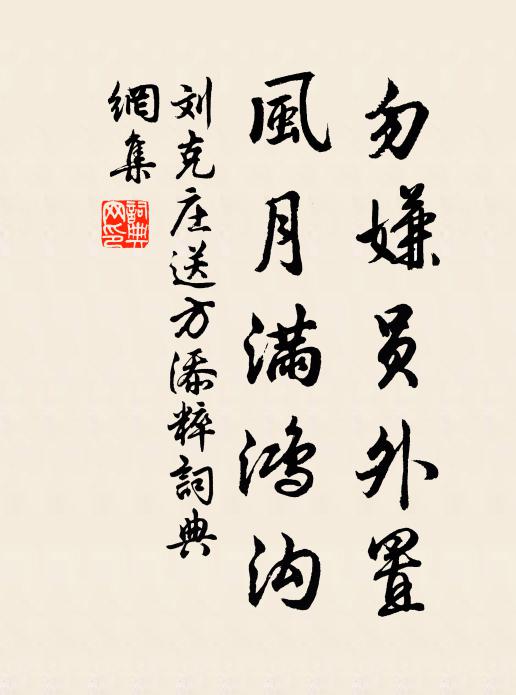 勿嫌员外置
風月满鸿沟
刘克庄送方添粹詞典
網集
詞典网印